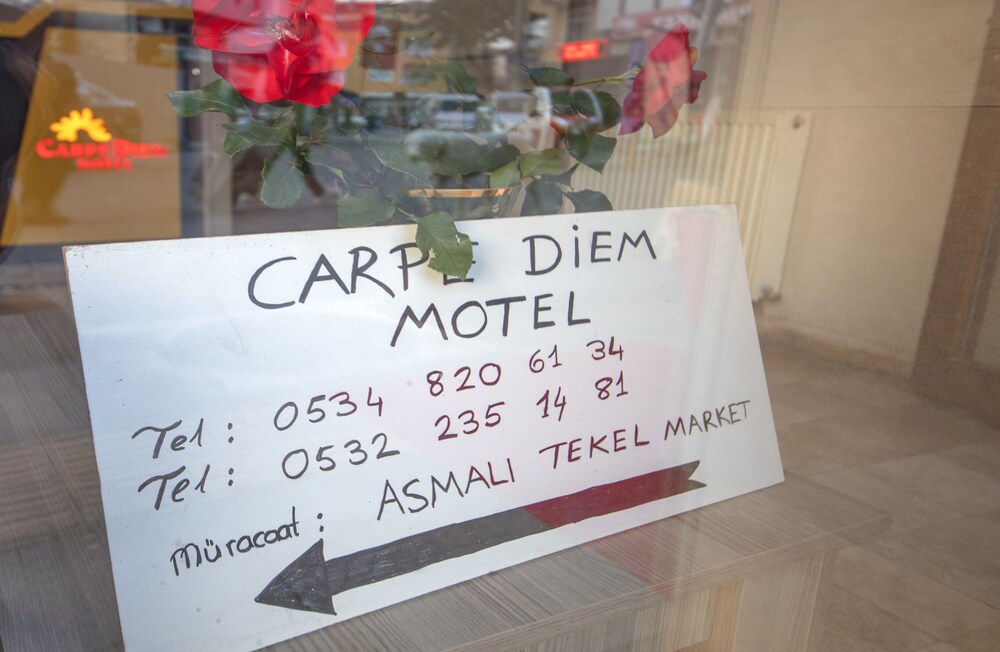 CARPE DiEM
CARPE DİEM
MOTEL
Tel : 0534 820 61 34
Tel : 0532 235 14 81
Müracaat : ASMALI TEKEL MARKET